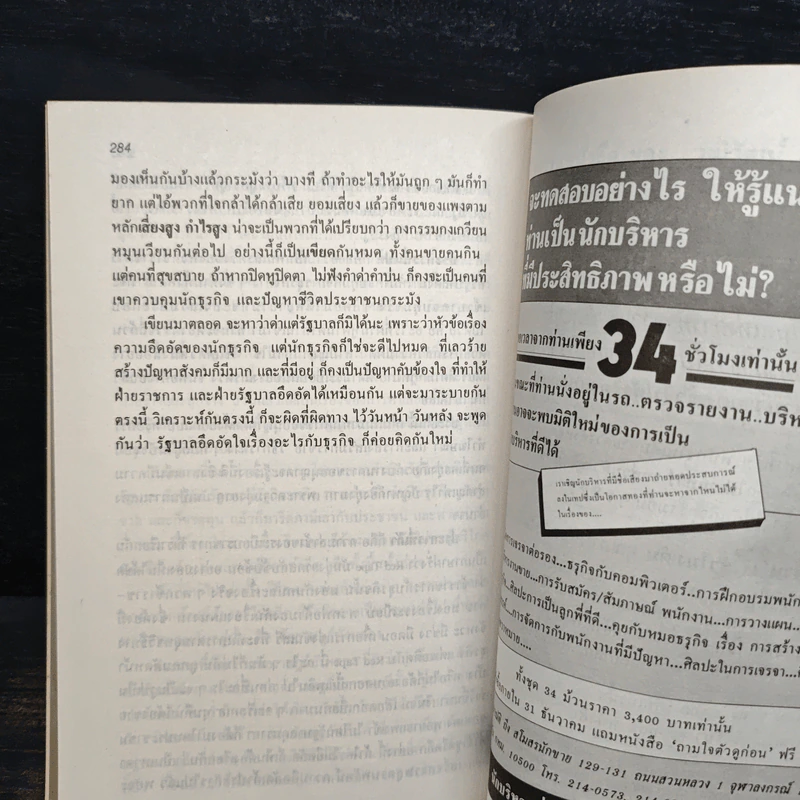 284
มองเห็นกันบ้างแล้วกระมังว่า บางที ถ้าทำอะไรให้มันถูก ๆ มันก็ทำ
ยาก แต่ไอ้พวกที่ใจกล้าได้กล้าเสีย ยอมเสี่ยง แล้วก็ขายของแพงตาม
หลักเสี่ยงสูง กำไรสูง น่าจะเป็นพวกที่ได้เปรียบกว่า กงกรรมกงเกวียน
หมุนเวียนกันต่อไป อย่างนี้ก็เป็นเขียดกันหมด ทั้งคนขายคนกิน
แต่คนที่สุขสบาย ถ้าหากปิดหูปิดตา ไม่ฟังคำด่าคำบ่น ก็คงจะเป็นคนที่
เขาควบคุมนักธุรกิจ และปัญหาชีวิตประชาชนกระมัง
เขียนมาตลอด จะหาว่าด่าแต่รัฐบาลก็มิได้นะ เพราะว่าหัวข้อเรื่อง
ความอึดอัดของนักธุรกิจ แต่นักธุรกิจก็ใช่จะดีไปหมด ที่เลวร้าย
สร้างปัญหาสังคมก็มีมาก และที่มีอยู่ ก็คงเป็นปัญหาคับข้องใจ ที่ทำให้
ฝ่ายราชการ และฝ่ายรัฐบาลอึดอัดได้เหมือนกัน แต่จะมาระบายกัน
ตรงนี้ วิเคราะห์กันตรงนี้ ก็จะผิดที่ผิดทาง ไว้วันหน้า วันหลัง จะพูด
กันว่า รัฐบาลอึดอัดใจเรื่องอะไรกับธุรกิจ ก็ค่อยคิดกันใหม่
จะทดสอบอย่างไร ให้รู้แน
ท่านเป็นนักบริหาร
ที่มีประสิทธิภาพ หรือไม่?
เวลาจากท่านเพียง 34 ชั่วโมงเท่านั้น
ขณะที่ท่านนั่งอยู่ในรถ..ตรวจรายงาน..บริห
อาจจะพบมิติใหม่ของการเป็น
บริหารที่ดีได้
เราเชิญนักบริหารที่มีชื่อเสียงมาถ่ายทอดประสบการณ์
ลงในเทปซึ่งเป็นโอกาสทองที่ท่านจะหาจากไหนไม่ได้
ในเรื่องของ....
ารเจรจาต่อรอง...ธุรกิจกับคอมพิวเตอร์..การฝึกอบรมพนัก
งานขาย...การรับสมัคร/สัมภาษณ์ พนักงาน...การวางแผน..
ศิลปะการเป็นลูกพี่ที่ดี...คุยกับหมอธุรกิจ เรื่อง การสร้าง
การจัดการกับพนักงานที่มีปัญหา...ศิลปะในการเจรจา...
หมาย....
ทั้งชุด 34 ม้วนราคา 3,400 บาทเท่านั้น
ภายใน 31 ธันวาคม แถมหนังสือ 'ถามใจตัวดูก่อน' ฟรี
สโมสรนักขาย 129-131 ถนนสวนหลวง 1 จุฬาลงกรณ์
กทม. 10500 โทร. 214-0573,